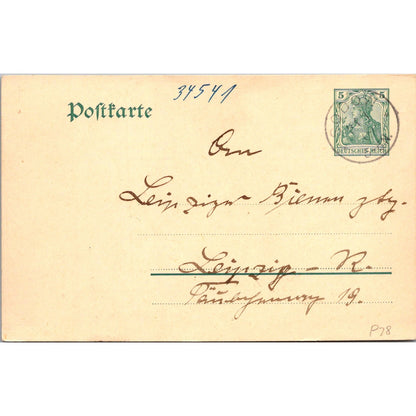 34541
Postkarte
5 5
DEUTSCHES REICH
An
Leipziger Bienen ztg.
Leipzig - R.
Täubchenweg 19.
P78